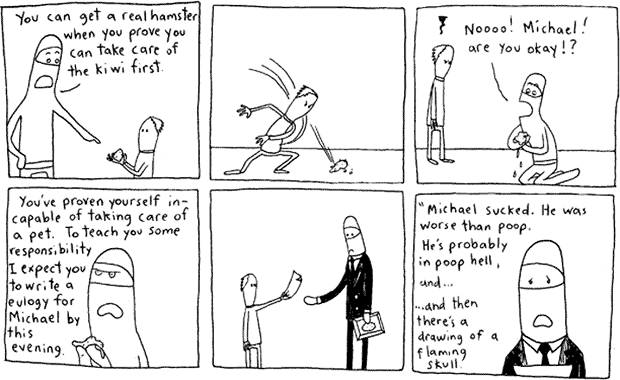 You can get a real hamster
when you prove you
can take care of
the kiwi first.
Noooo! Michael!
are you okay!?
You've proven yourself in-
capable of taking care of
a pet. To teach you some
responsibility
I expect you
to write a
eulogy for
Michael by
this
evening.
"Michael sucked. He was
worse than poop.
He's probably
in poop hell,
and...
...and then
there's a
drawing of a
flaming
skull.